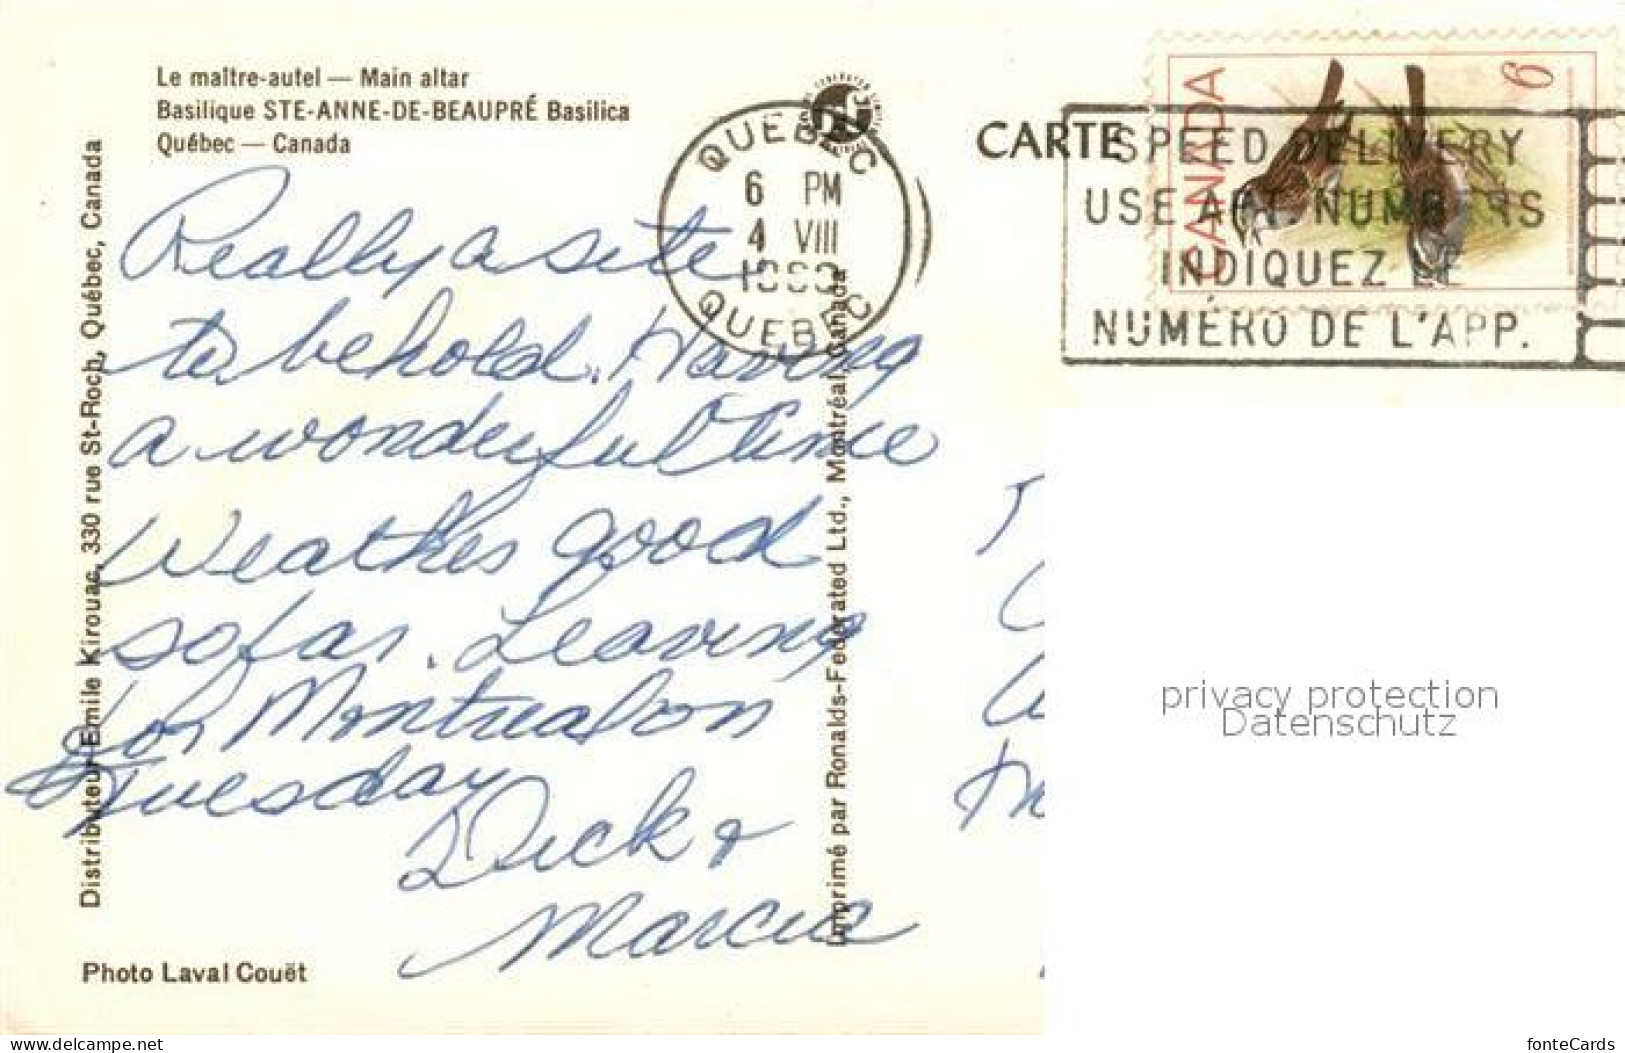 Le maître-autel — Main altar
Basilique STE-ANNE-DE-BEAUPRÉ Basilica
Québec — Canada
Distributeur Emile Kirouac, 330 rue St-Roch, Québec, Canada
Really a site
to behold. Having
a wonderful time
Weather good
so far. Leaving
for Montreal on
Tuesday
Dick &
Marcia
Photo Laval Couët
QUEBEC
6 PM
4 VIII
QUEBEC
Imprimé par Ronalds-Federated Ltd., Montréal, Canada
CARTE
CANADA
6
SPEED DELIVERY
USE APT NUMBERS
INDIQUEZ LE
NUMÉRO DE L'APP.
privacy protection
Datenschutz
www.delcampe.net
fonteCards